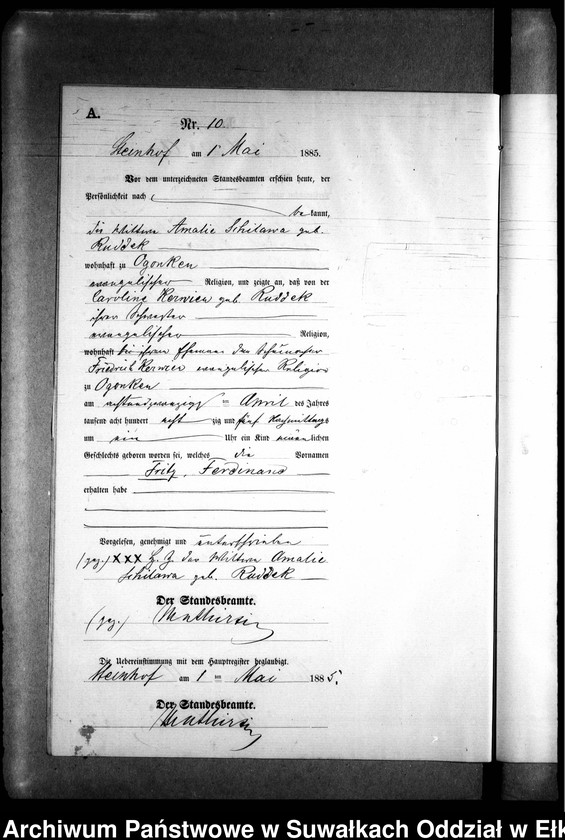 A.
Nr. 10.
Steinhof am 1 Mai 1885.
Vor dem unterzeichneten Standesbeamten erschien heute, der
Persönlichkeit nach
be kannt,
die Wittwe Amalie Schilawa geb.
Ruddek
wohnhaft zu Ogonken
evangelischer Religion, und zeigte an, daß von der
Caroline Kerwien geb Ruddek
ihrer Schwester
evangelischer Religion,
wohnhaft bei ihrem Ehemann dem Schumacher
Friedrich Kerwien evangelischer Religion
zu Ogonken
am achtundzwanzigsten April des Jahres
tausend acht hundert acht zig und fünf Nachmittags
um ein Uhr ein Kind männlichen
Geschlechts geboren worden sei, welches die Vornamen
Fritz, Ferdinand
erhalten habe
Vorgelesen, genehmigt und unterschrieben
(gez.) XXX H. Z. der Wittwe Amalie
Schilawa geb. Ruddek
Der Standesbeamte.
(gez.)
Die Uebereinstimmung mit dem Hauptregister beglaubigt.
Steinhof am 1 ten Mai 1885.
Der Standesbeamte.
Archiwum Państwowe w Suwałkach Oddział w Ełk